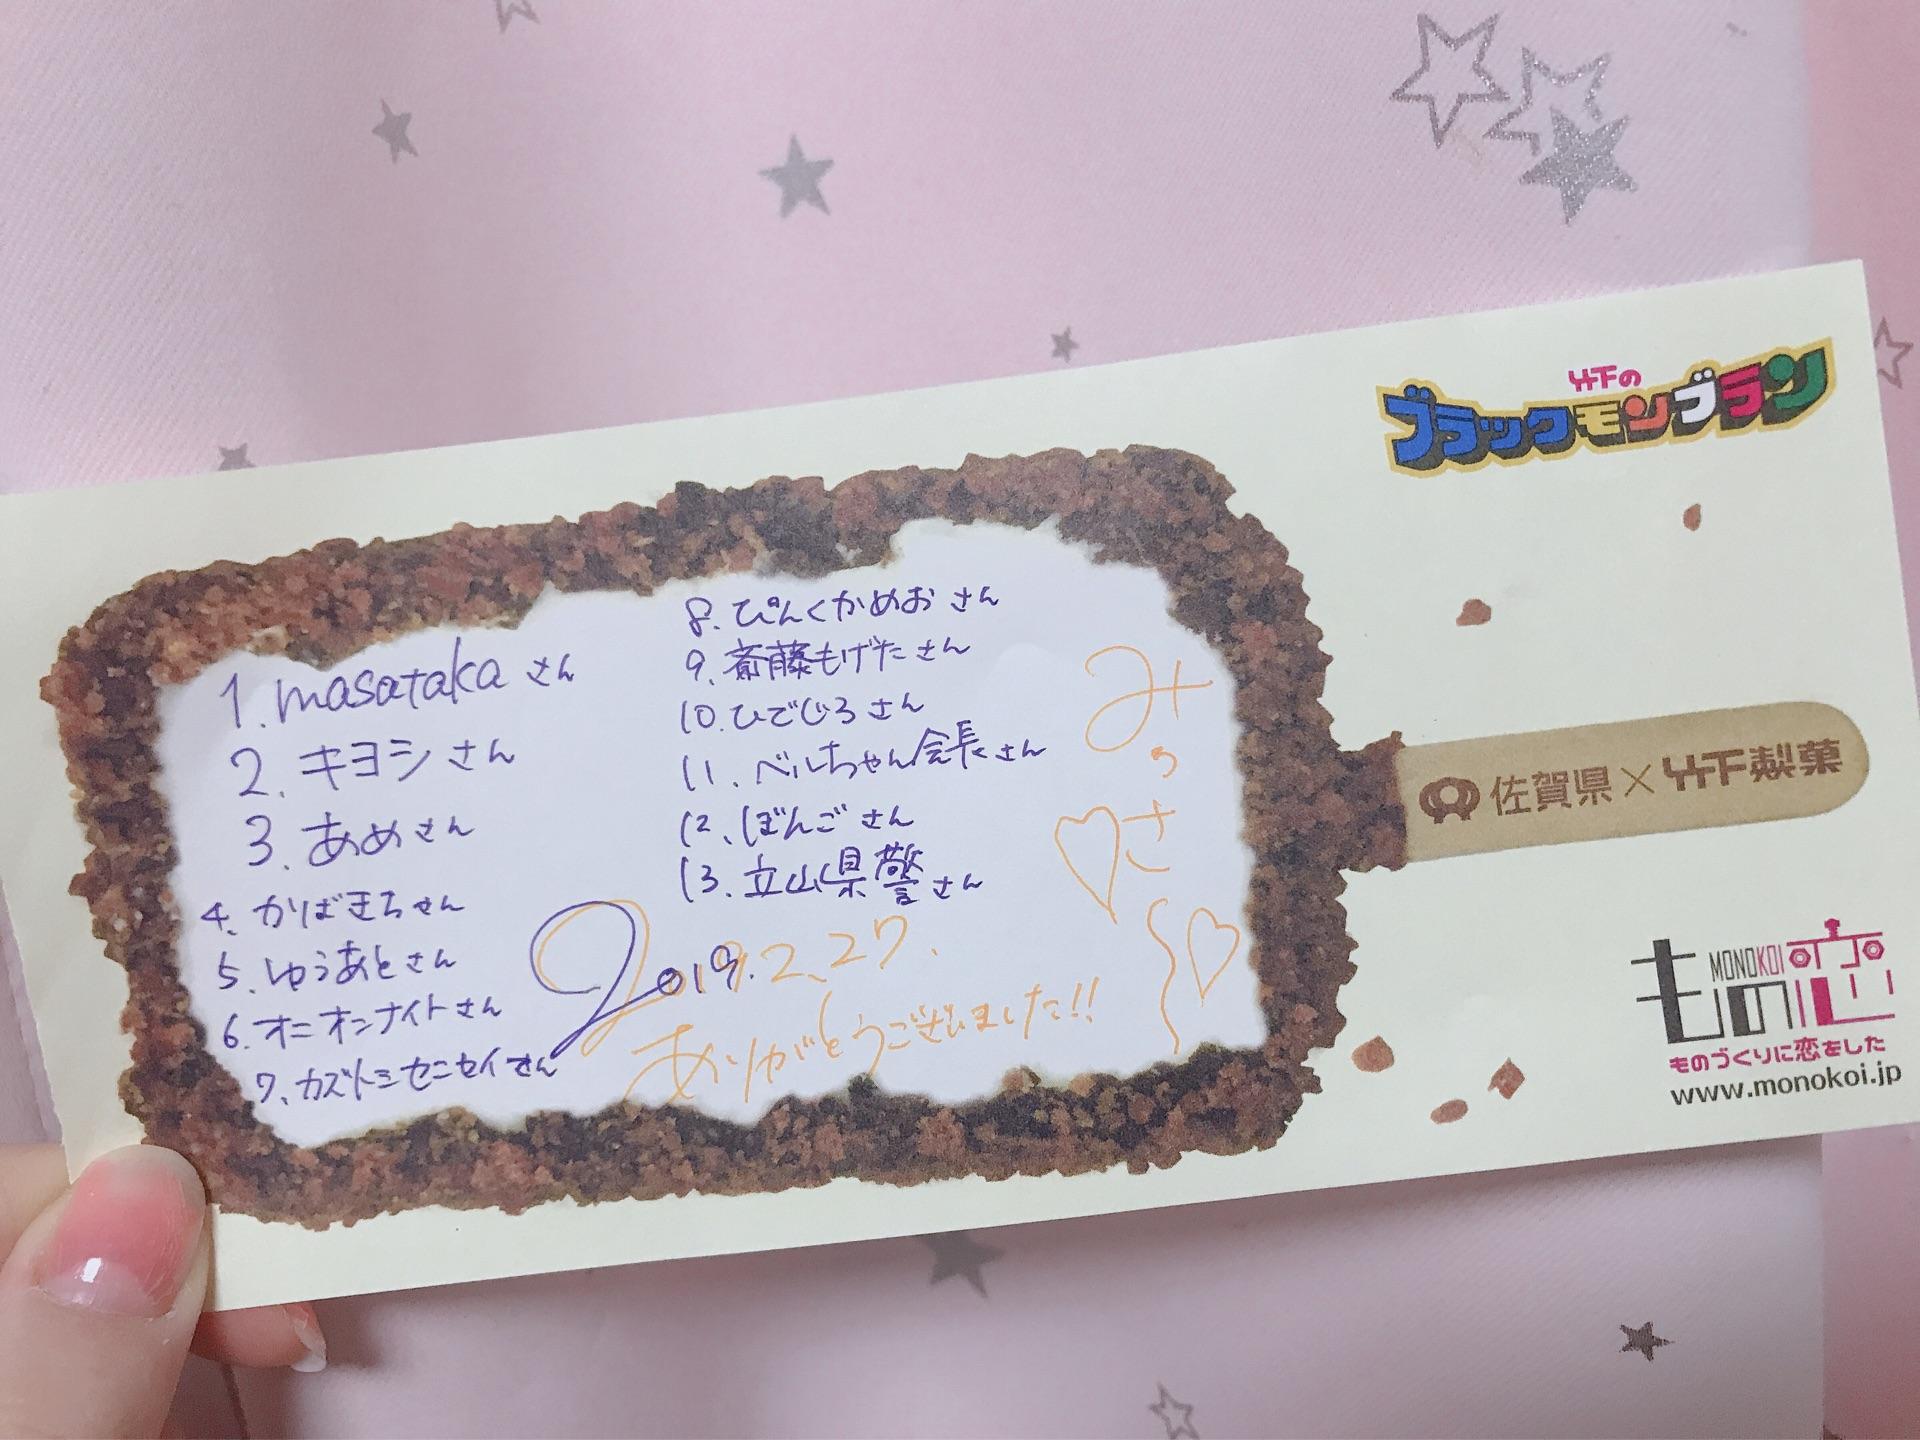 竹下の
ブラックモンブラン
1. masataka さん
2. キヨシ さん
3. あめ さん
4. かばきち さん
5. ゆうあと さん
6. オニオンナイト さん
7. カズトシセニセイ さん
8. ぴんくかめお さん
9. 斎藤もげた さん
10. ひでじろ さん
11. ベルちゃん会長 さん
12. ぼんご さん
13. 立山県警 さん
2019.2.27.
ありがとうございました!!
佐賀県×竹下製菓
MONOKOI
もの恋
ものづくりに恋をした
www.monokoi.jp